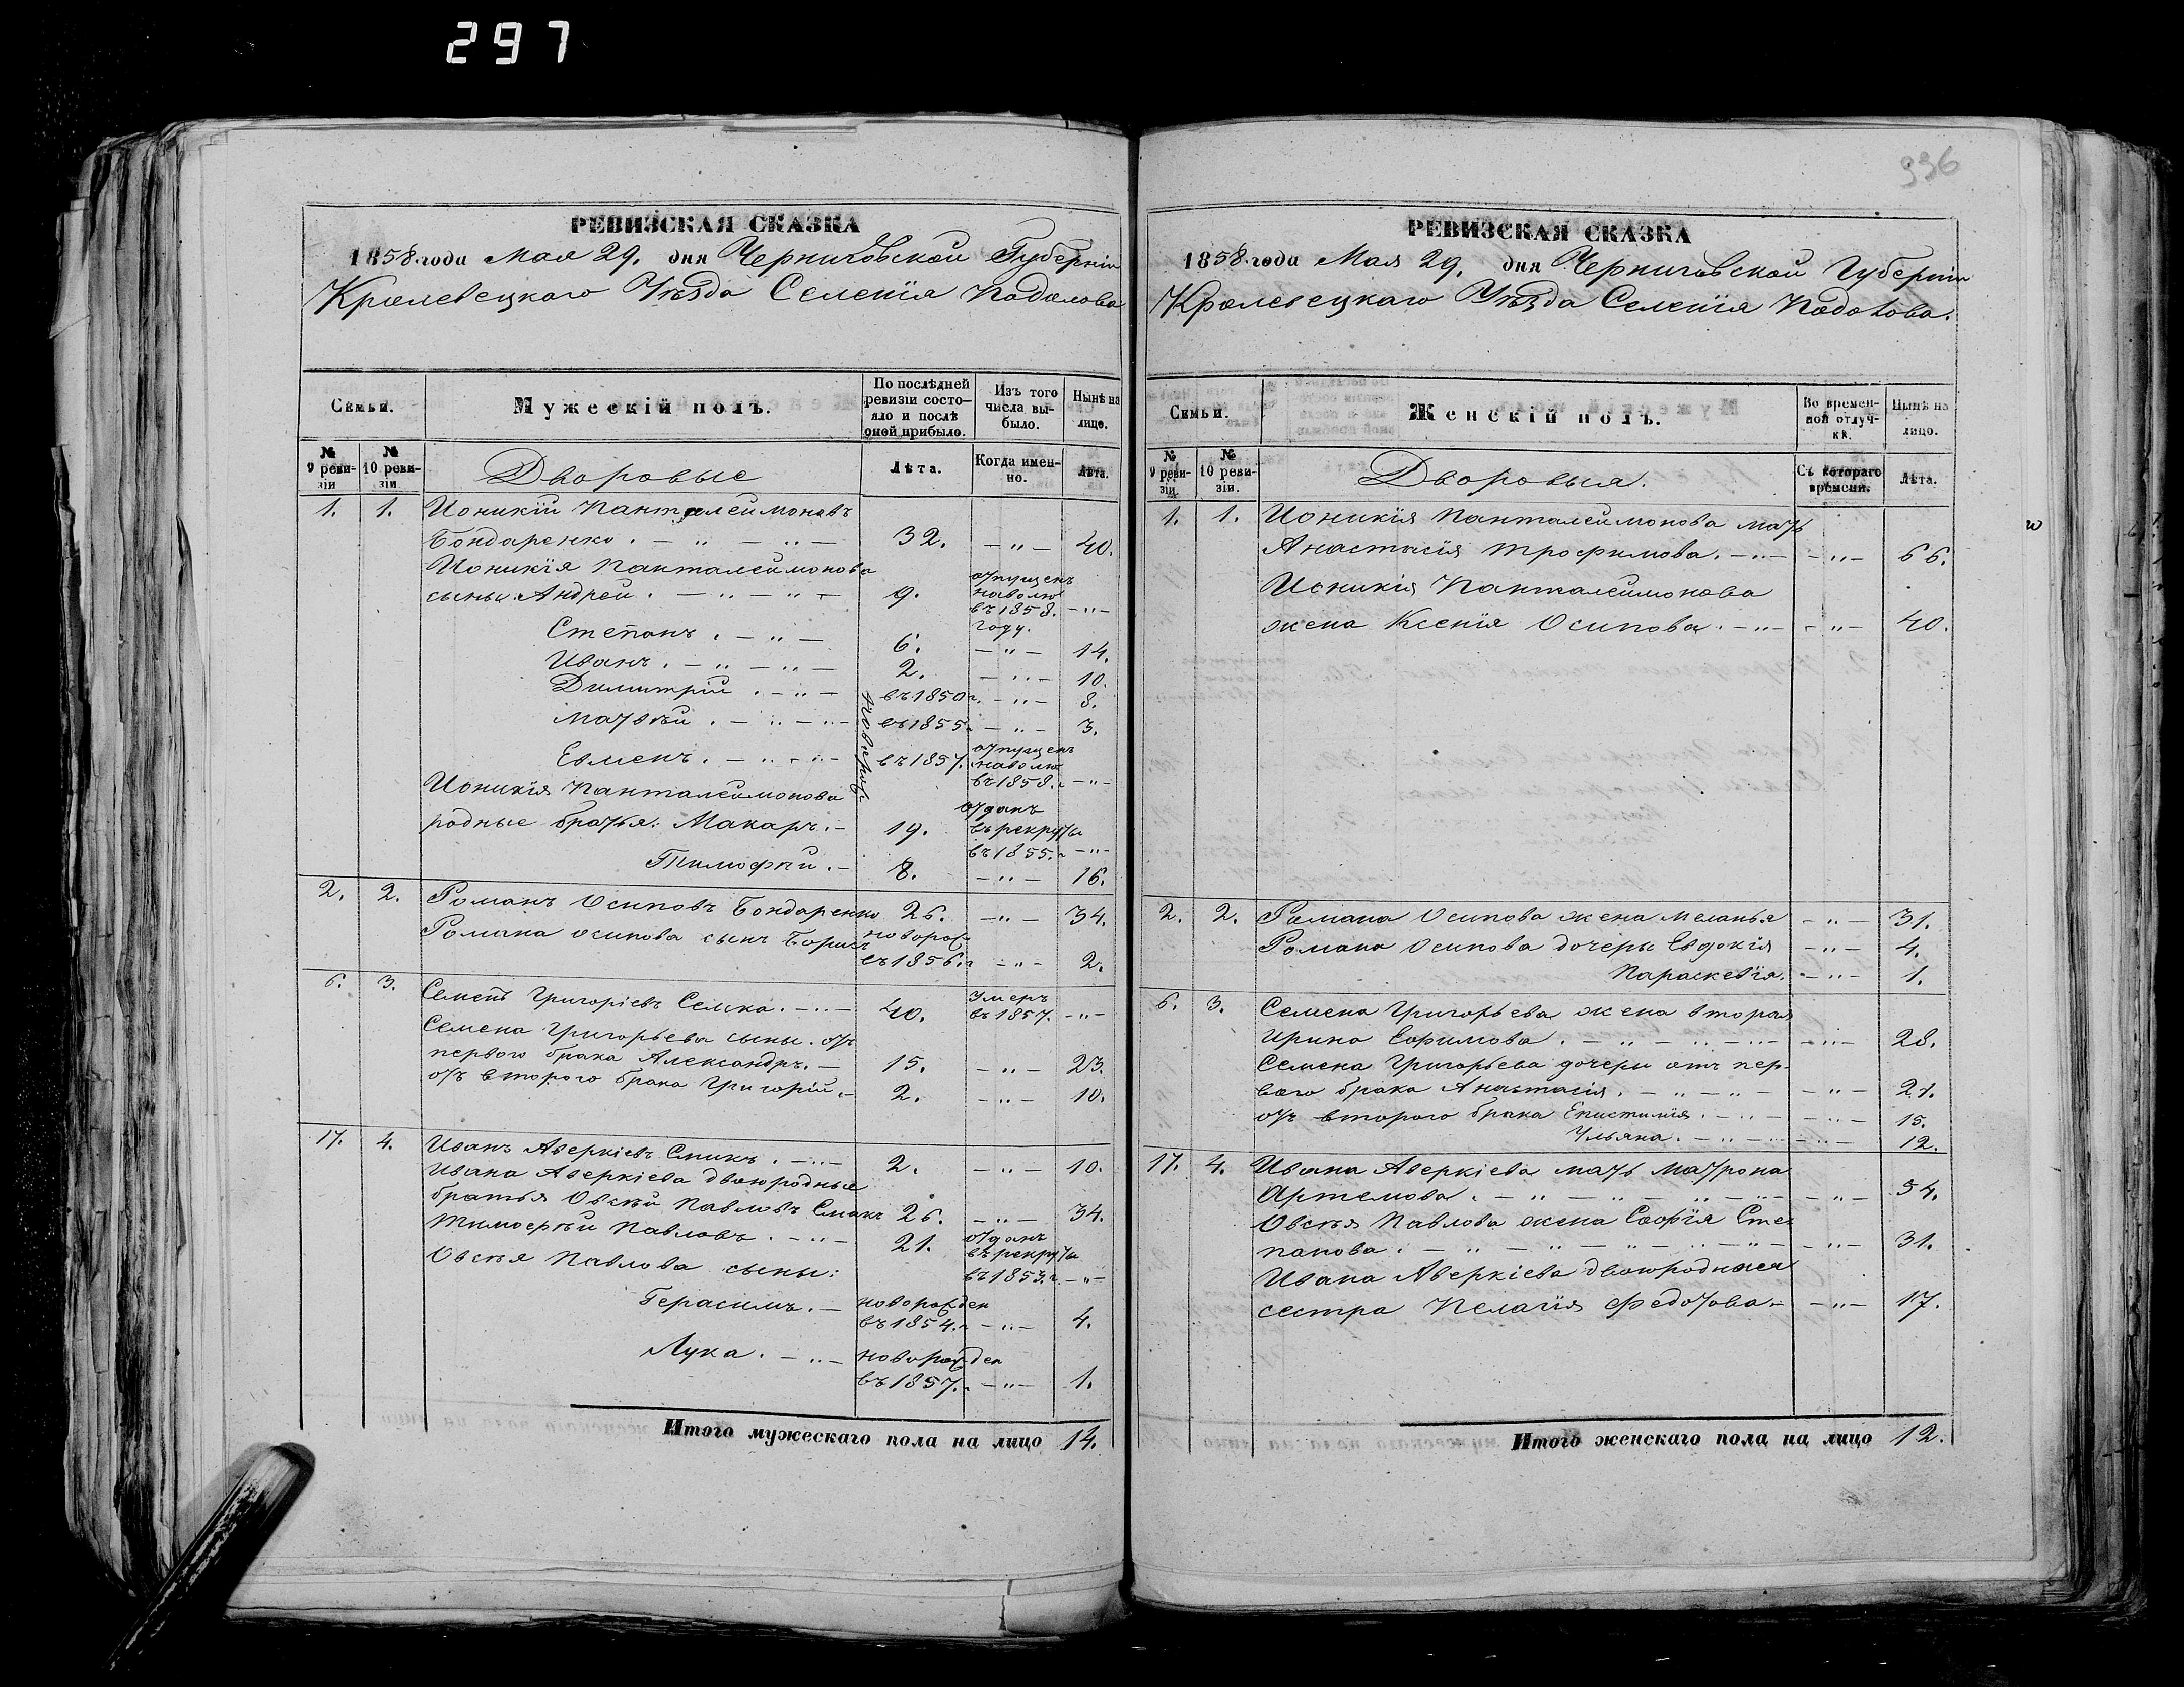 297
РЕВИЗСКАЯ СКАЗКА
1858 года Мая 29. дня Черниговской Губерніи
Кролевецкаго Уѣзда Селенія Подолова
Семьи.
Мужескій полъ.
По послѣдней ревизіи состояло и послѣ оной прибыло.
Изъ того числа выбыло.
Нынѣ на лице.
№ 9 ревизіи
№ 10 ревизіи
Дворовые
Лѣта.
Когда именно.
Лѣта.
1. 1. Іоникій Панталеймоновъ
Бондаренко. — „ — „ — 32. — „ — 40.
Іоникія Панталеймонова
сыны: Андрей. — „ — „ — 9. отпущенъ на волю въ 1858. году. — „ —
Степанъ. — „ — 6. — „ — 14.
Иванъ. — „ — „ — 2. — „ — 10.
Димитрій. — „ — новорож. въ 1850 г. — „ — 8.
Матвѣй. — „ — „ — въ 1855. — „ — 3.
Евменъ. — „ — „ — въ 1857. отпущенъ на волю въ 1858. г. — „ —
Іоникія Панталеймонова
родные братья: Макаръ. — 19. отданъ въ рекруты въ 1855. г. — „ —
Тимофѣй. — 8. — „ — 16.
2. 2. Романъ Осиповъ Бондаренко 26. — „ — 34.
Романа Осипова сынъ Борисъ новорож въ 1856. г. — „ — 2.
6. 3. Семенъ Григоріевъ Семка. — „ — 40. умеръ въ 1857. — „ —
Семена Григорьева сыны. отъ
перваго брака Александръ. — 15. — „ — 23.
отъ втораго брака Григорій. — 2. — „ — 10.
17. 4. Иванъ Аверкіевъ Смыкъ. — „ — 2. — „ — 10.
Ивана Аверкіева двоюродные
братья Овсѣй Павловъ Смыкъ 26. — „ — 34.
Тимофѣй Павловъ. — „ — 21. отданъ въ рекруты въ 1853. г. — „ —
Овсѣя Павлова сыны:
Герасимъ. — новорожден въ 1854. г. — „ — 4.
Лука. — „ — новорожден въ 1857. г. — „ — 1.
Итого мужескаго пола на лицо 14.
936
РЕВИЗСКАЯ СКАЗКА
1858 года Мая 29. дня Черниговской Губерніи
Кролевецкаго Уѣзда Селенія Подолова.
Семьи.
Женскій полъ.
Во временной отлучкѣ.
Нынѣ на лицо.
№ 9 ревизіи.
№ 10 ревизіи.
Дворовыя.
Съ котораго времени.
Лѣта.
1. 1. Іоникія Панталеймонова мать
Анастасія Трофимова. — „ — — „ — 66.
Іоникія Панталеймонова
жена Ксенія Осипова. — „ — — „ — 40.
2. 2. Романа Осипова жена Меланья — „ — 31.
Романа Осипова дочери Евдокія — „ — 4.
Параскевія. — „ — 1.
6. 3. Семена Григорьева жена вторая
Ирина Ефимова. — „ — „ — „ — — „ — 28.
Семена Григорьева дочери отъ пер-
ваго брака Анастасія. — „ — „ — — „ — 21.
отъ втораго брака Епистимія. — „ — — „ — 15.
Ульяна. — „ — „ — — „ — 12.
17. 4. Ивана Аверкіева мать Матрона
Артемова. — „ — „ — „ — „ — — „ — 54.
Овсѣя Павлова жена Софія Сте-
панова. — „ — „ — „ — „ — „ — — „ — 31.
Ивана Аверкіева двоюродная
сестра Пелагія Федотова. — — „ — 17.
Итого женскаго пола на лицо 12.